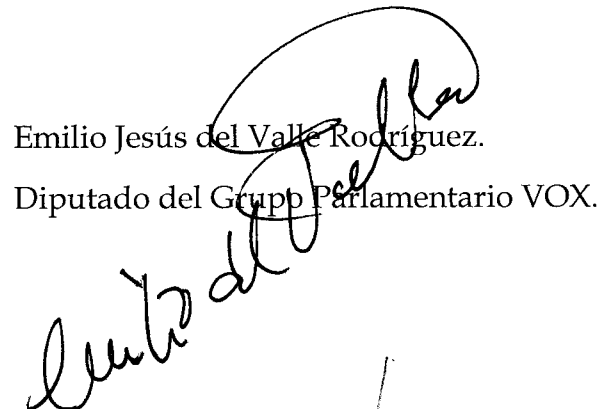 Emilio Jesús del Valle Rodríguez.
Diputado del Grupo Parlamentario VOX.
Emilio del Valle